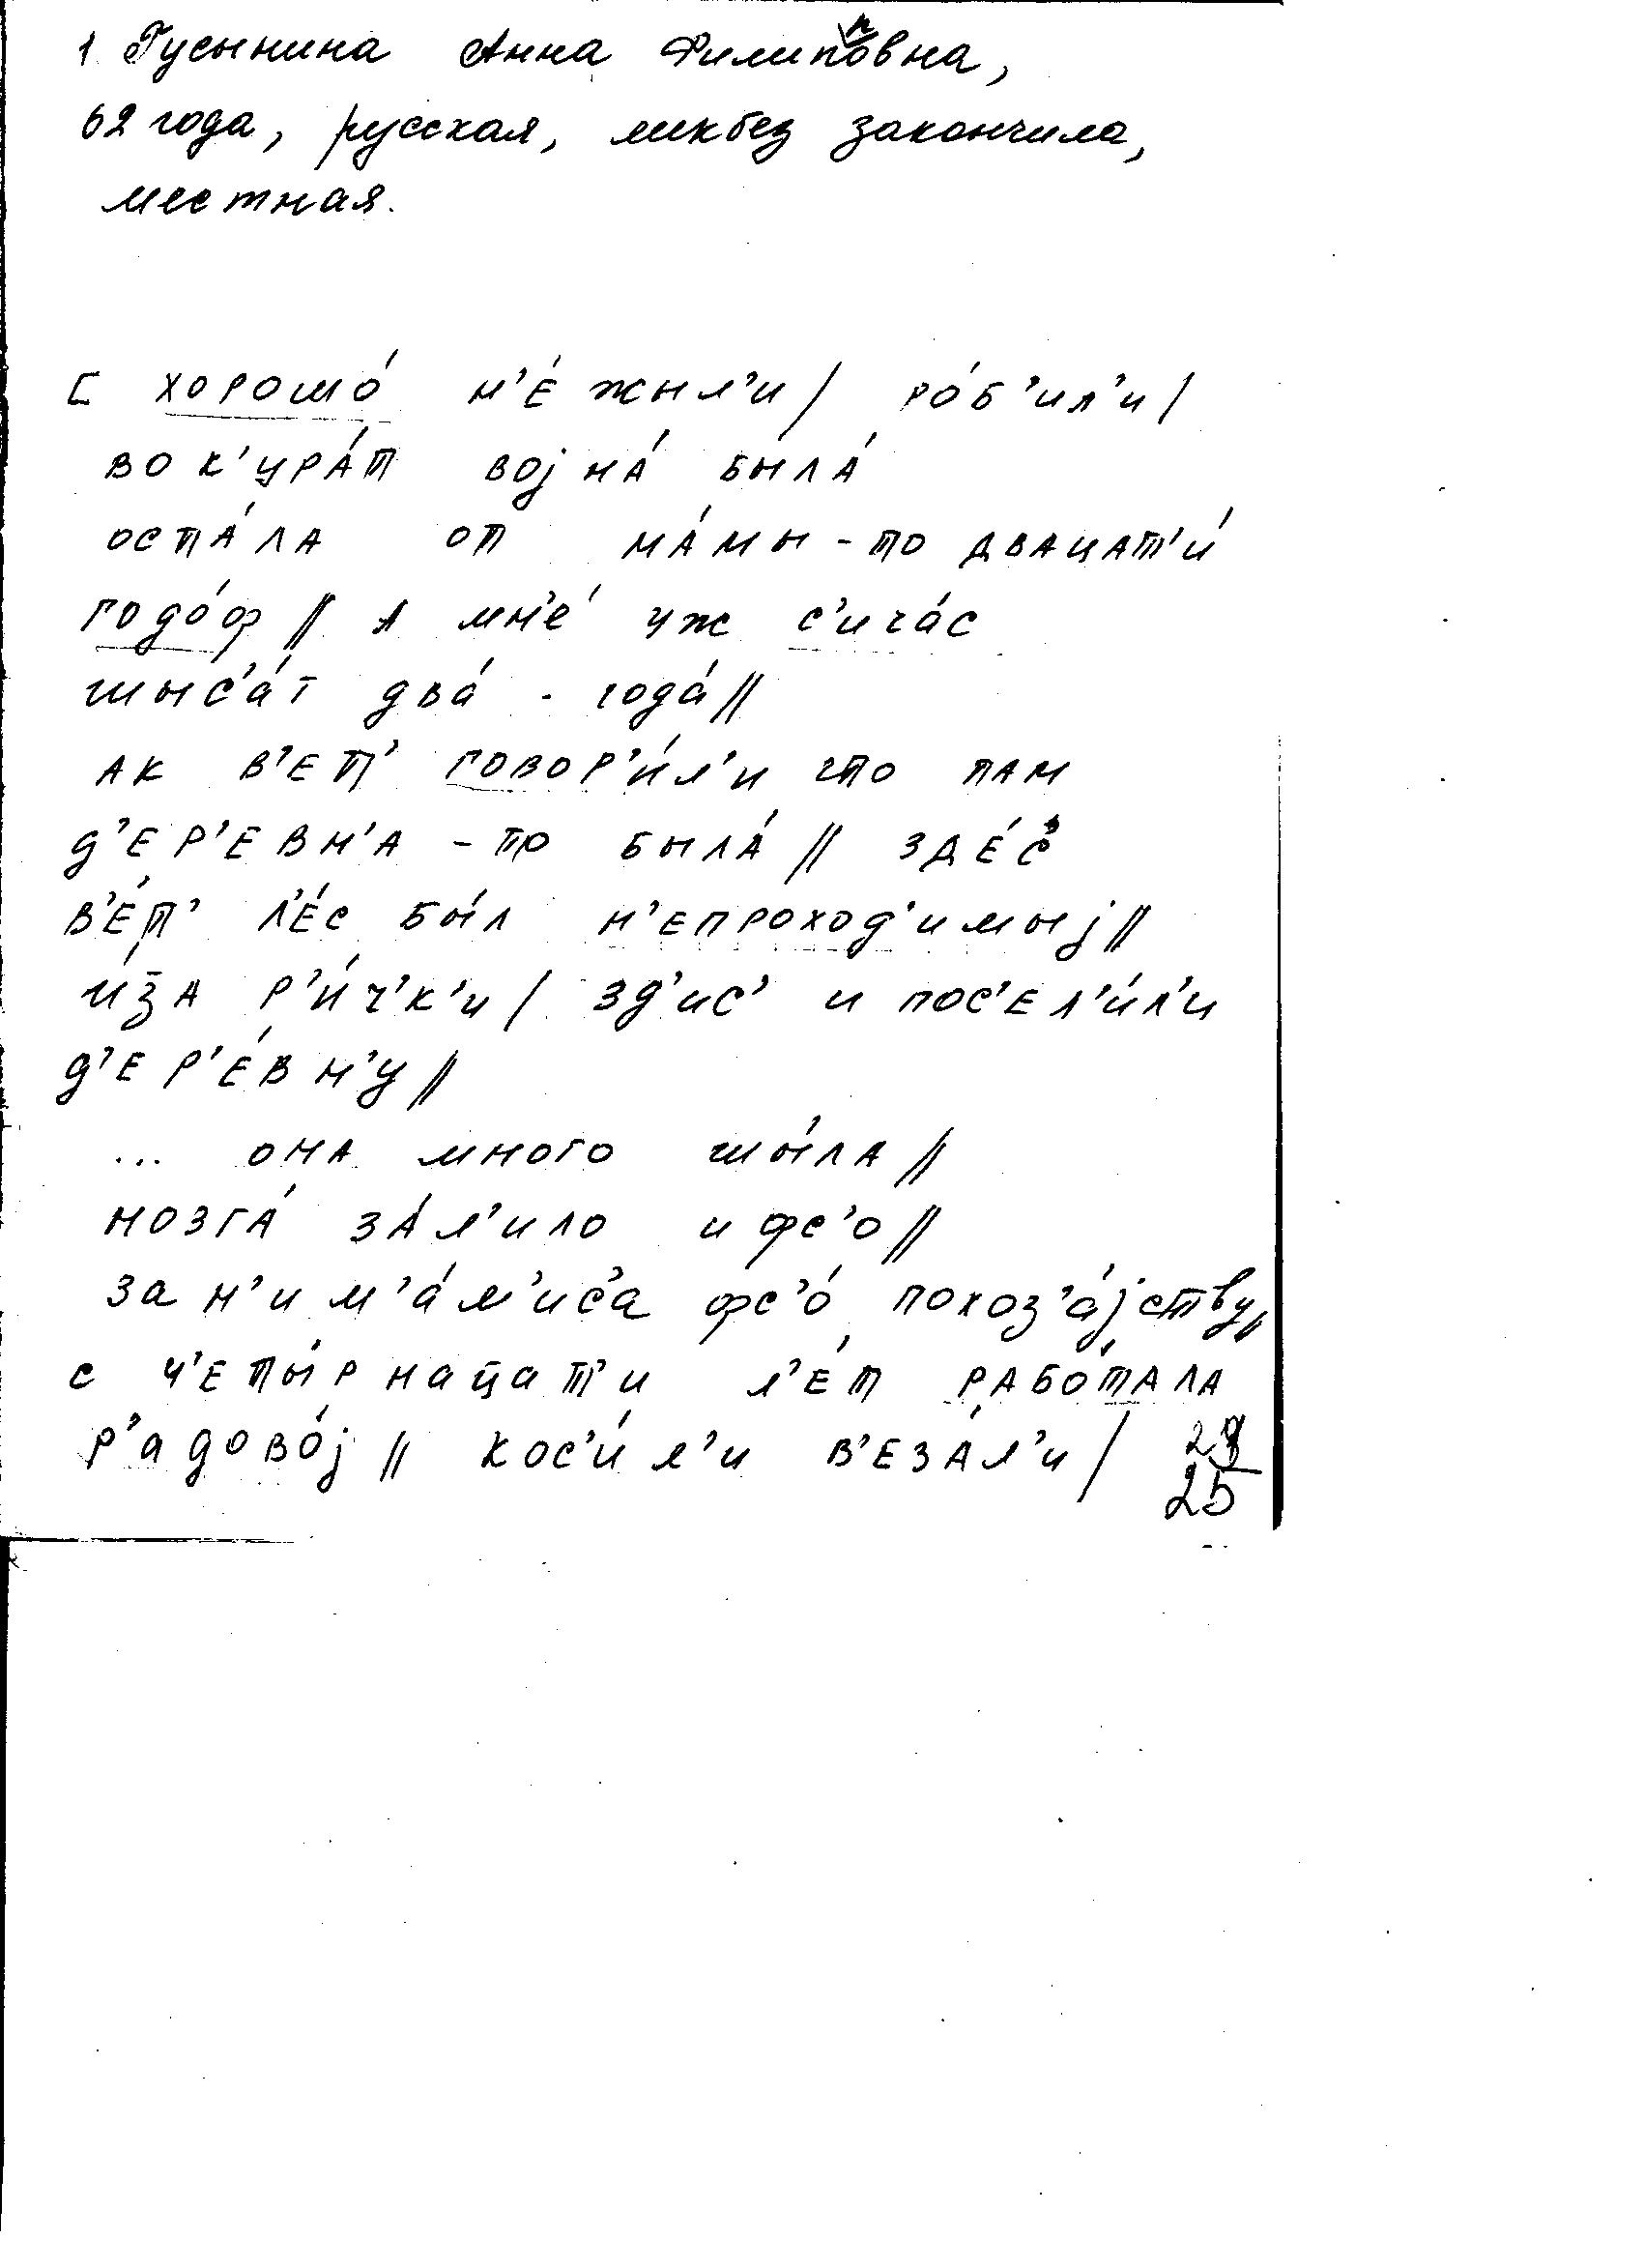 1 Гусынина Анна Филипповна,
62 года, русская, ликбез закончила,
местная.
[ хорошо́ н'е́ жыл'и / ро́б'ил'и /
вок'ура́т војна́ была́
оста́ла от ма́мы-то двацат'и́
годо́ф // а мн'е́ уж с'ича́с
шыс'а́т два́ - года́ //
ак в'ет' говор'и́л'и что там
д'ер'евн'а-то была́ // зде́с'
в'е́т' л'е́с бы́л н'епроход'имыј //
иза р'и́ч'к'и / зд'ис' и пос'ел'и́л'и
д'ер'е́вн'у //
... она много шы́ла //
мозга́ за́л'ило и фс'о //
зан'им'а́л'ис'а фс'о́ похоз'а́јству //
с ч'еты́рнацат'и л'е́т рабо́тала
р'адово́ј // кос'и́л'и в'еза́л'и /
25